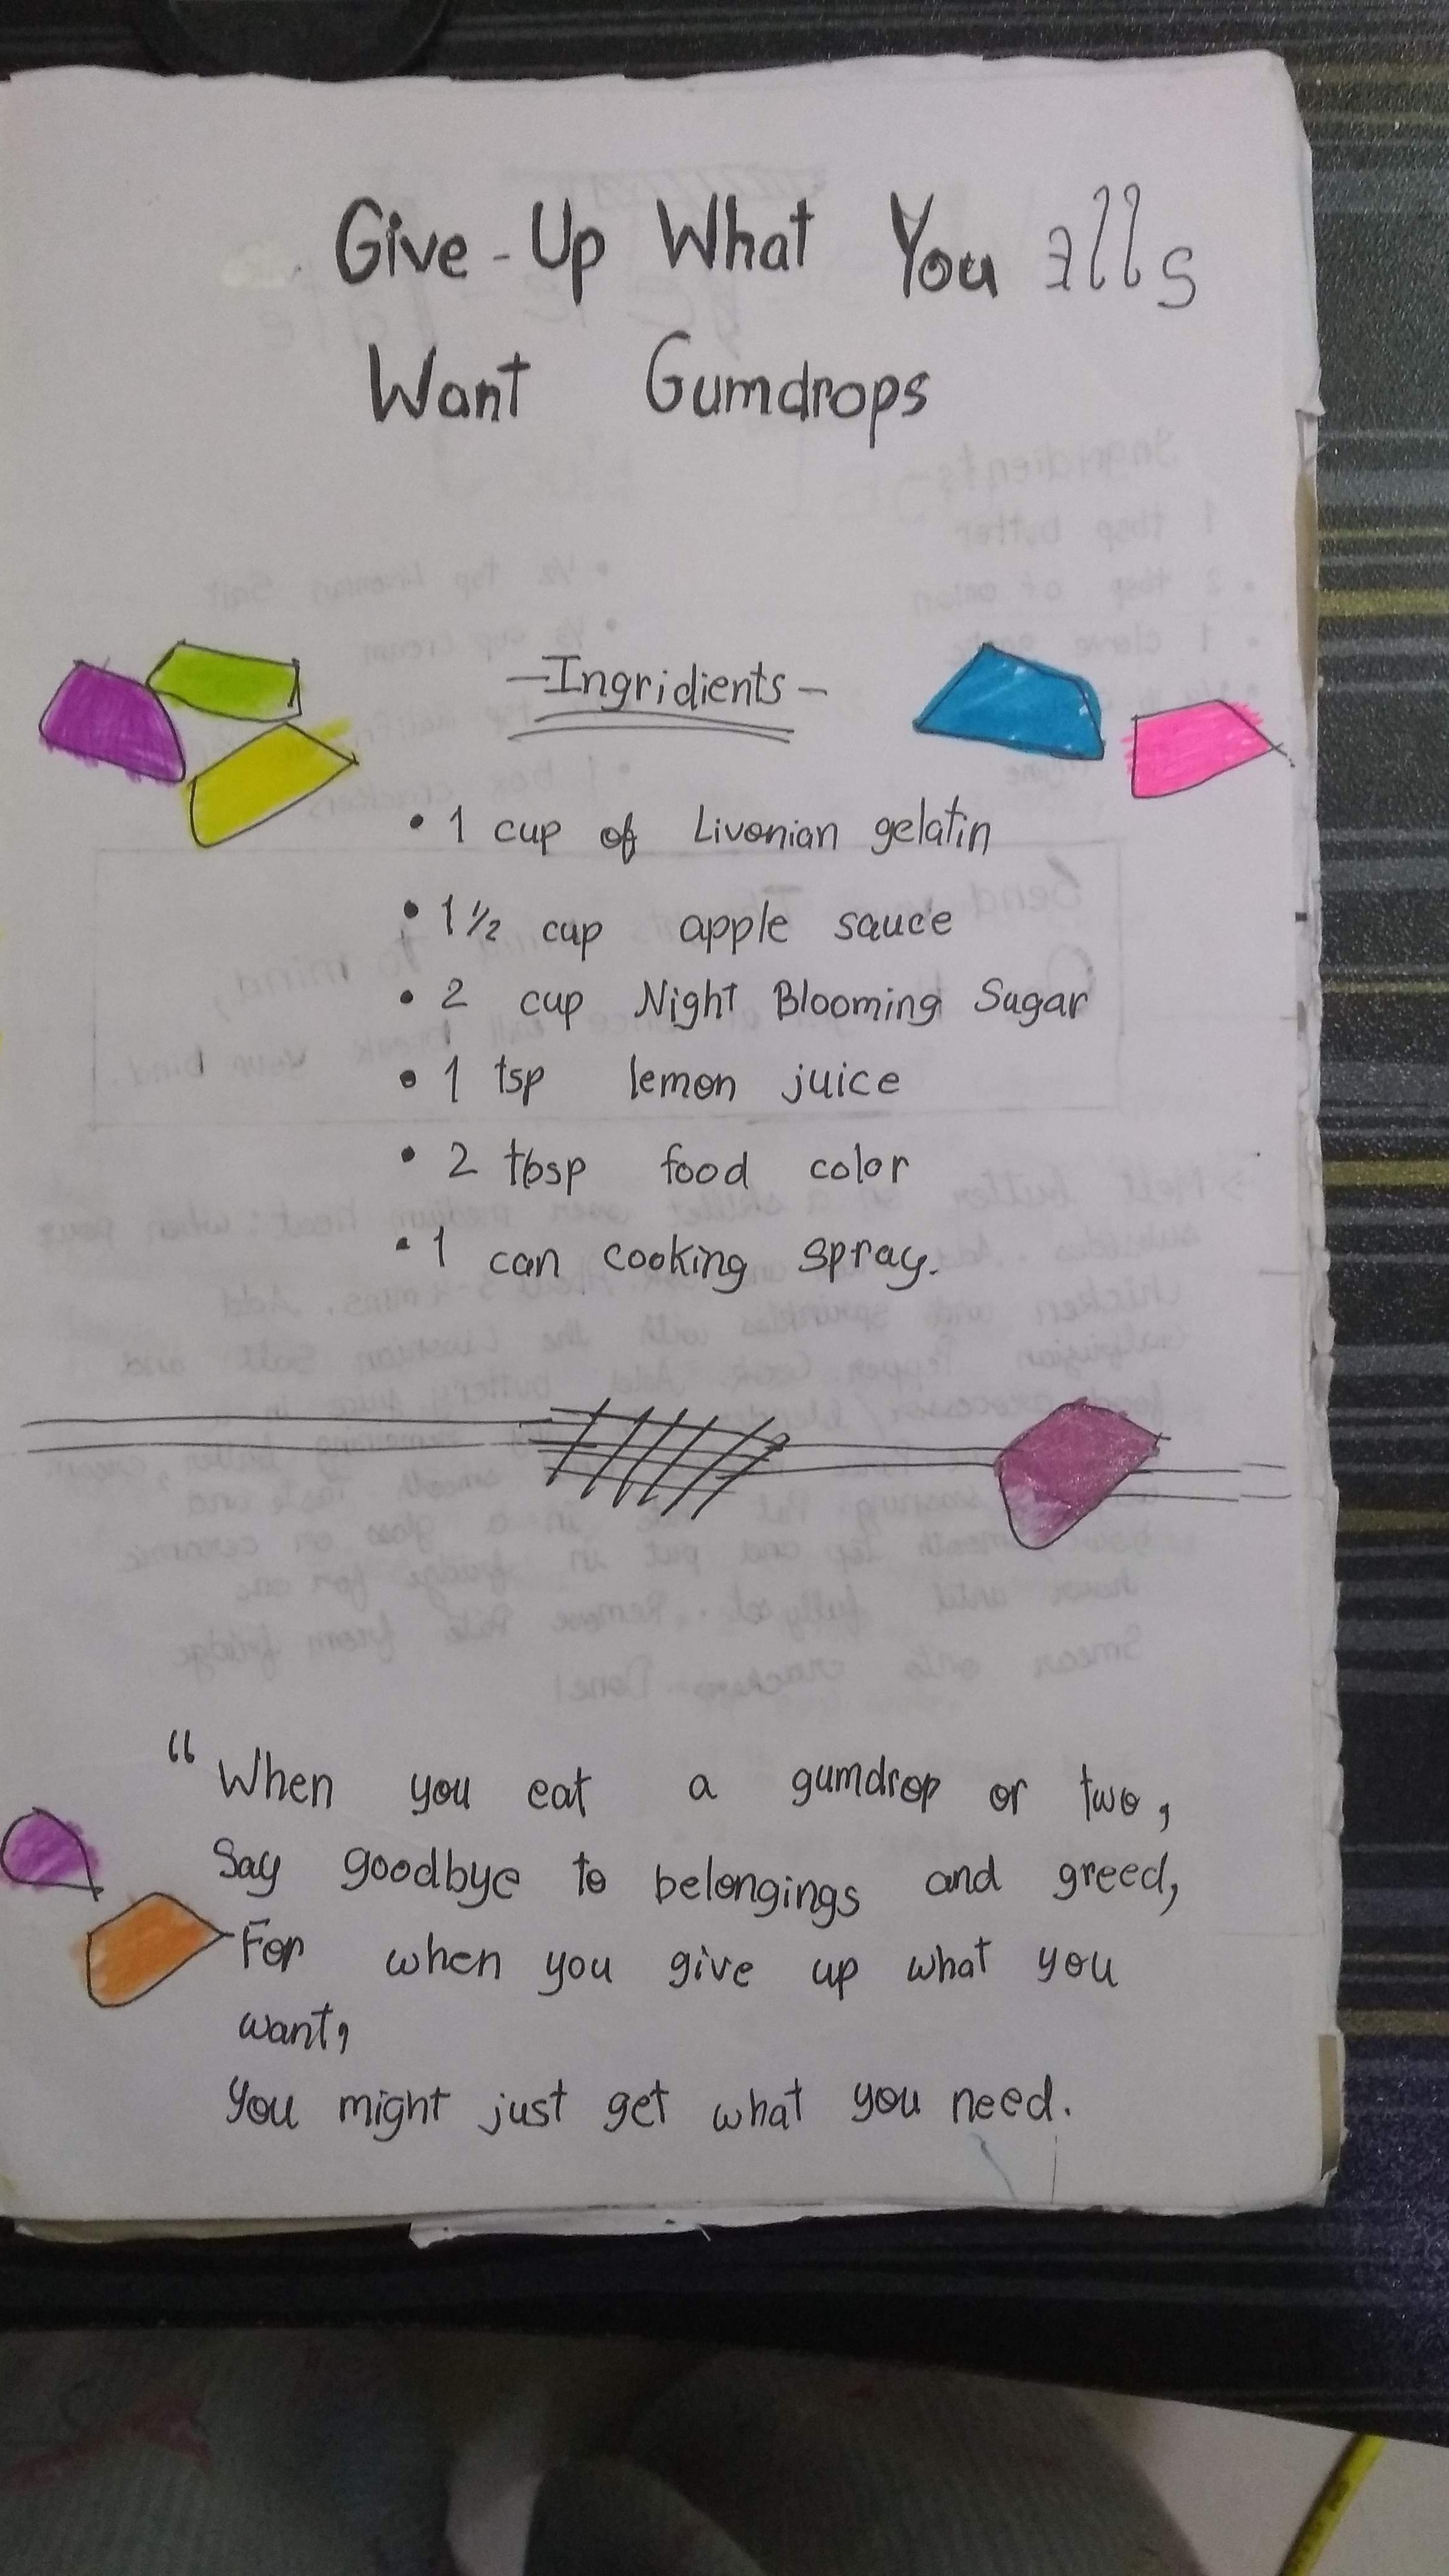 Give-Up What You alls
Want Gumdrops
-Ingridients-
• 1 cup of Livonian gelatin
• 1 1/2 cup apple sauce
• 2 cup Night Blooming Sugar
• 1 tsp lemon juice
• 2 tbsp food color
• 1 can cooking spray.
“When you eat a gumdrop or two,
Say goodbye to belongings and greed,
For when you give up what you
want,
You might just get what you need.